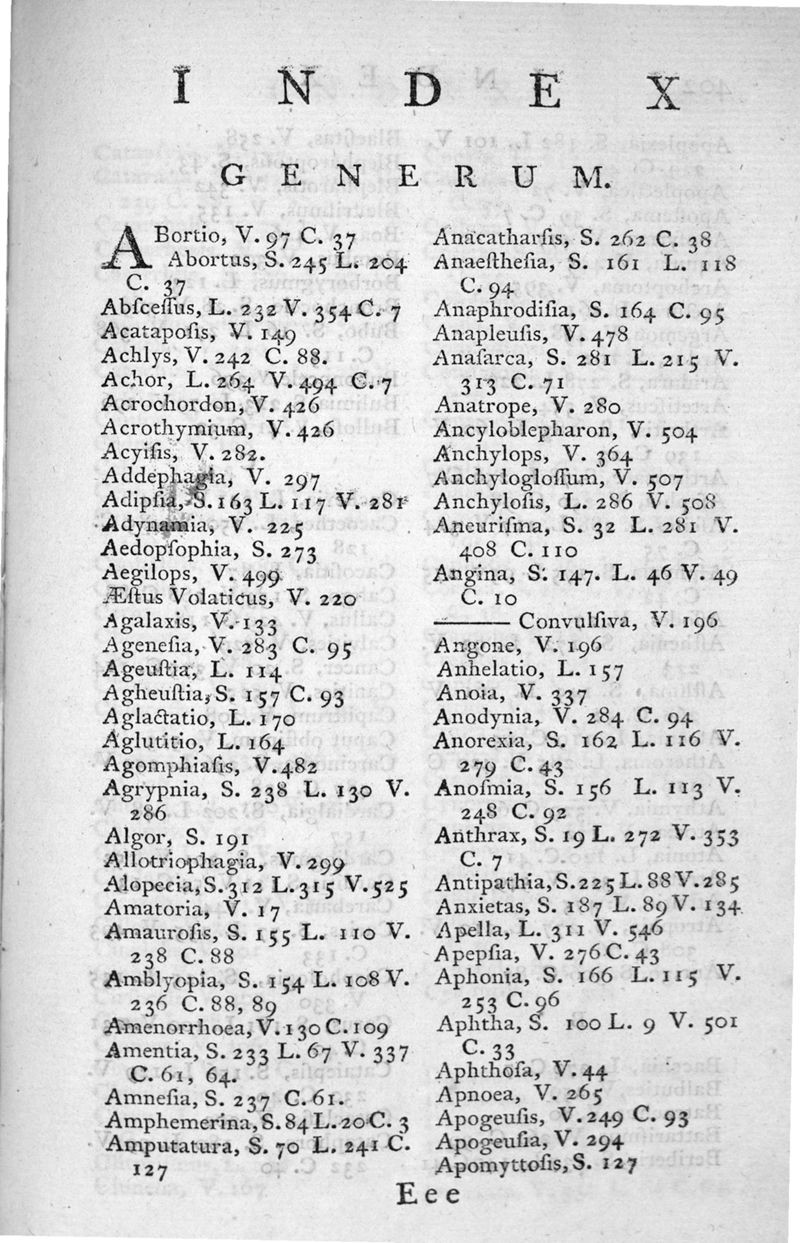 INDEX
GENERUM.
ABortio, V. 97 C. 37
Abortus, S. 245 L. 204
C. 37
Abſceſſus, L. 232 V. 354 C. 7
Acatapoſis, V. 149
Achlys, V. 242 C. 88.
Achor, L. 264 V. 494 C. 7
Acrochordon, V. 426
Acrothymium, V. 426
Acyiſis, V. 282.
Addephagia, V. 297
Adipſia, S. 163 L. 117 V. 281
Adynamia, V. 225
Aedopſophia, S. 273
Aegilops, V. 499
Æſtus Volaticus, V. 220
Agalaxis, V. 133
Ageneſia, V. 283 C. 95
Ageuſtia, L. 114
Agheuſtia, S. 157 C. 93
Aglactatio, L. 170
Aglutitio, L. 164
Agomphiaſis, V. 482
Agrypnia, S. 238 L. 130 V.
286
Algor, S. 191
Allotriophagia, V. 299
Alopecia, S. 312 L. 315 V. 525
Amatoria, V. 17
Amauroſis, S. 155 L. 110 V.
238 C. 88
Amblyopia, S. 154 L. 108 V.
236 C. 88, 89
Amenorrhoea, V. 130 C. 109
Amentia, S. 233 L. 67 V. 337
C. 61, 64.
Amneſia, S. 237 C. 61.
Amphemerina, S. 84 L. 20 C. 3
Amputatura, S. 70 L. 241 C.
127
Anacatharſis, S. 262 C. 38
Anaeſtheſia, S. 161 L. 118
C. 94
Anaphrodiſia, S. 164 C. 95
Anapleuſis, V. 478
Anaſarca, S. 281 L. 215 V.
313 C. 71
Anatrope, V. 280
Ancyloblepharon, V. 504
Anchylops, V. 364
Anchylogloſſum, V. 507
Anchyloſis, L. 286 V. 508
Aneuriſma, S. 32 L. 281 V.
408 C. 110
Angina, S. 147. L. 46 V. 49
C. 10
——— Convulſiva, V. 196
Angone, V. 196
Anhelatio, L. 157
Anoia, V. 337
Anodynia, V. 284 C. 94
Anorexia, S. 162 L. 116 V.
279 C. 43
Anoſmia, S. 156 L. 113 V.
248 C. 92
Anthrax, S. 19 L. 272 V. 353
C. 7
Antipathia, S. 225 L. 88 V. 285
Anxietas, S. 187 L. 89 V. 134
Apella, L. 311 V. 546
Apepſia, V. 276 C. 43
Aphonia, S. 166 L. 115 V.
253 C. 96
Aphtha, S. 100 L. 9 V. 501
C. 33
Aphthoſa, V. 44
Apnoea, V. 265
Apogeuſis, V. 249 C. 93
Apogeuſia, V. 294
Apomyttoſis, S. 127
Eee